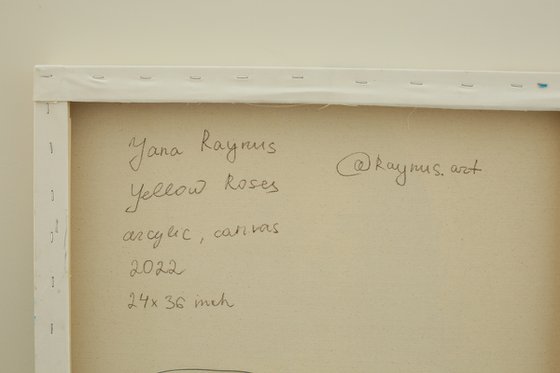 Yana Raynus
Yellow Roses
arcylic, canvas
2022
24x36 inch
@Raynus.art